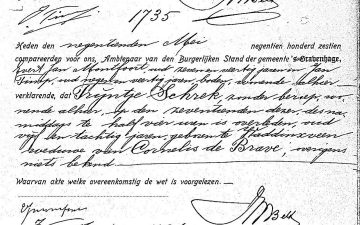 1735
Heden den negentienden Mei negentien honderd zestien
compareerden voor ons, Ambtenaar van den Burgerlijken Stand der gemeente 's-Gravenhage,
Evert Jan Montfoort, oud zeven en veertig jaren en Jan
oud negen en veertig jaren, beiden, wonende alhier
verklarende, dat Trijntje Schrek, zonder beroep, wo-
nende alhier, op den zeventienden dezer, des na-
middags te half vier uren is overleden, oud
vijf en tachtig jaren, geboren te Waddinxveen
weduwe van Cornelis de Brave; overigens
niets bekend.
Waarvan akte welke overeenkomstig de wet is voorgelezen.